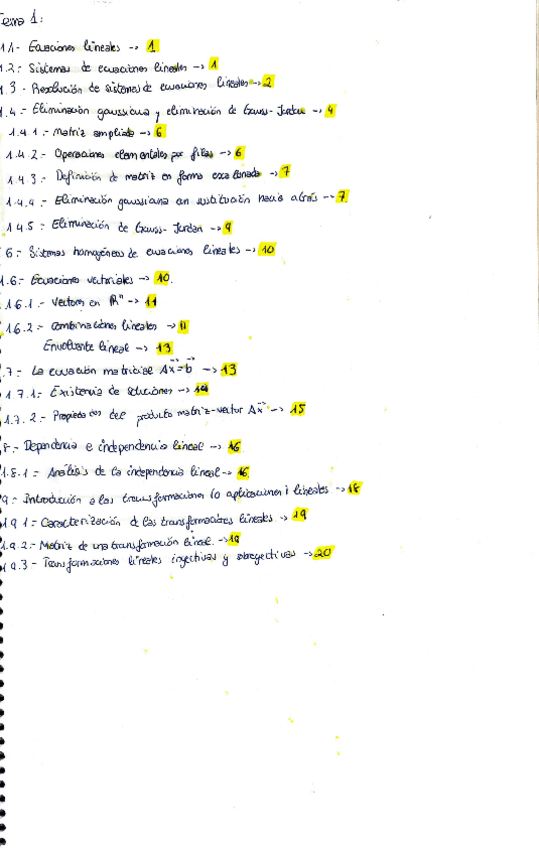 Tema 1:
1.1- Ecuaciones lineales -> 1
1.2- Sistemas de ecuaciones lineales -> 1
1.3- Resolución de sistemas de ecuaciones lineales -> 2
1.4- Eliminación gaussiana y eliminación de Gauss-Jordan -> 4
1.4.1- Matriz ampliada -> 6
1.4.2- Operaciones elementales por filas -> 6
1.4.3- Definición de matriz en forma escalonada -> 7
1.4.4- Eliminación gaussiana con sustitución hacia atrás -> 7
1.4.5- Eliminación de Gauss-Jordan -> 9
6- Sistemas homogéneos de ecuaciones lineales -> 10
1.6- Ecuaciones vectoriales -> 10.
1.6.1- Vectores en ℝⁿ -> 11
1.6.2- Combinaciones lineales -> 11
Envolvente lineal -> 13
7- La ecuación matricial Ax⃗=b⃗ -> 13
1.7.1- Existencia de soluciones -> 14
1.7.2- Propiedades del producto matriz-vector Ax⃗ -> 15
8- Dependencia e independencia lineal -> 16
1.8.1- Análisis de la independencia lineal -> 16
9- Introducción a las transformaciones (o aplicaciones) lineales -> 18
1.9.1- Caracterización de las transformaciones lineales -> 19
1.9.2- Matriz de una transformación lineal. -> 19
1.9.3- Transformaciones lineales inyectivas y sobreyectivas -> 20